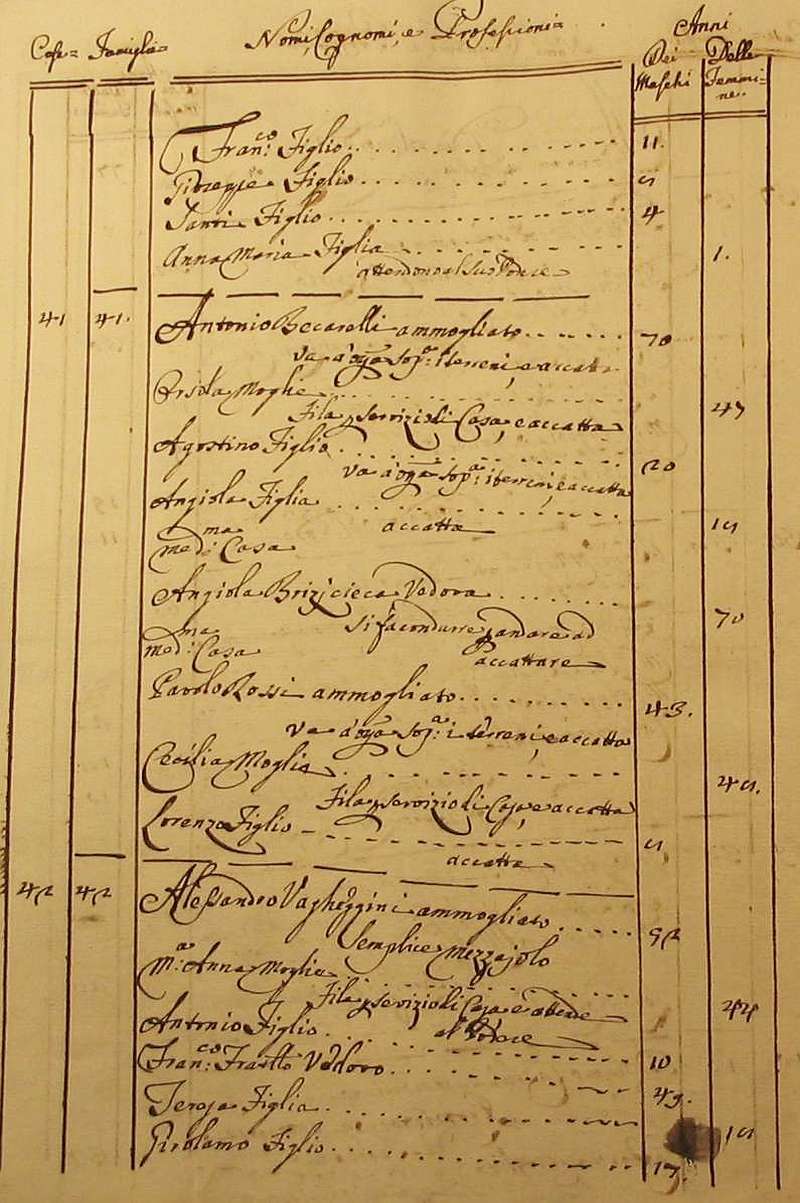 Case= Famiglie= Nomi, Cognomi, e Professioni= Anni
Dei Maschi Delle Femmi=
ne.
Fran:co Figlio 11.
Giuseppe Figlio
Santi Figlio 4
Anna Maria Figlia 1.
attendono al suo Podere
41 41. Antonio Becarelli ammogliato 70
va a op:e sop:a i terreni, e accatta
Orsola Moglie 47
Fila p servizio di Casa, e accatta
Agostino Figlio 20
va a op:e sop:a i terreni, e accatta
Angiola Figlia
accatta
med:ma Casa
Angiola Brizj cieca Vedova 70
si fa condurre p andare ad
accattare
med:ma Casa
Pavolo Rossi ammogliato 43.
va a op:e sop:a i terreni, e accatta
Cecilia Moglie
Fila p servizio di Casa, e accatta
Lorenzo Figlio
accatta
42 42 Alessandro Vagheggini ammogliato 52
Semplice mezzajolo
M:a Anna Moglie 44
Fila p servizio di Casa e attende
al Podere
Antonio Figlio 10
Fran:co Fratello Vedovo
Teresa Figlia
Girolamo Figlio 17.